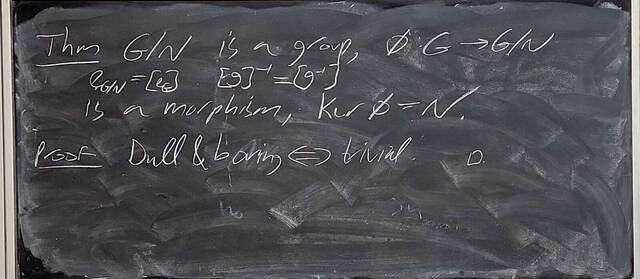 Thm G/N is a group, ϕ: G → G/N
e_{G/N} = [e_G] [g]^{-1} = [g^{-1}]
is a morphism, Ker ϕ = N.
Proof Dull & boring ⇔ trivial. □